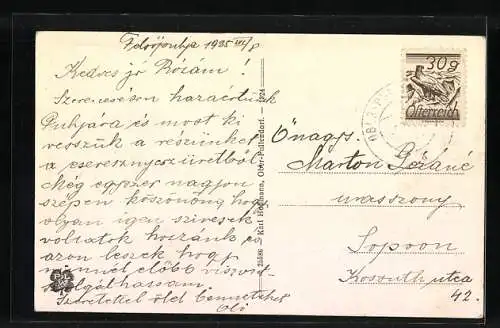 Felsőpulya 1925 VII/8
Kedves jó Rózám!
Szerencsésen hazaértünk
Pulyára és most ki
vesszük a részünket
a cseresznyeszüretből
Még egyszer nagyon
szépen köszönöm hogy
olyan igen szívesek
voltatok hozzánk és
azon leszek hogy
minnél előbb viszont
szolgálhassam.
Szeretettel ölel benneteket
25586 Karl Hofmann, Ober-Pullendorf. 1924
30g
Österreich
Önagys.
Marton Gézáné
urasszony
Sopron
Kossuth utca
42.